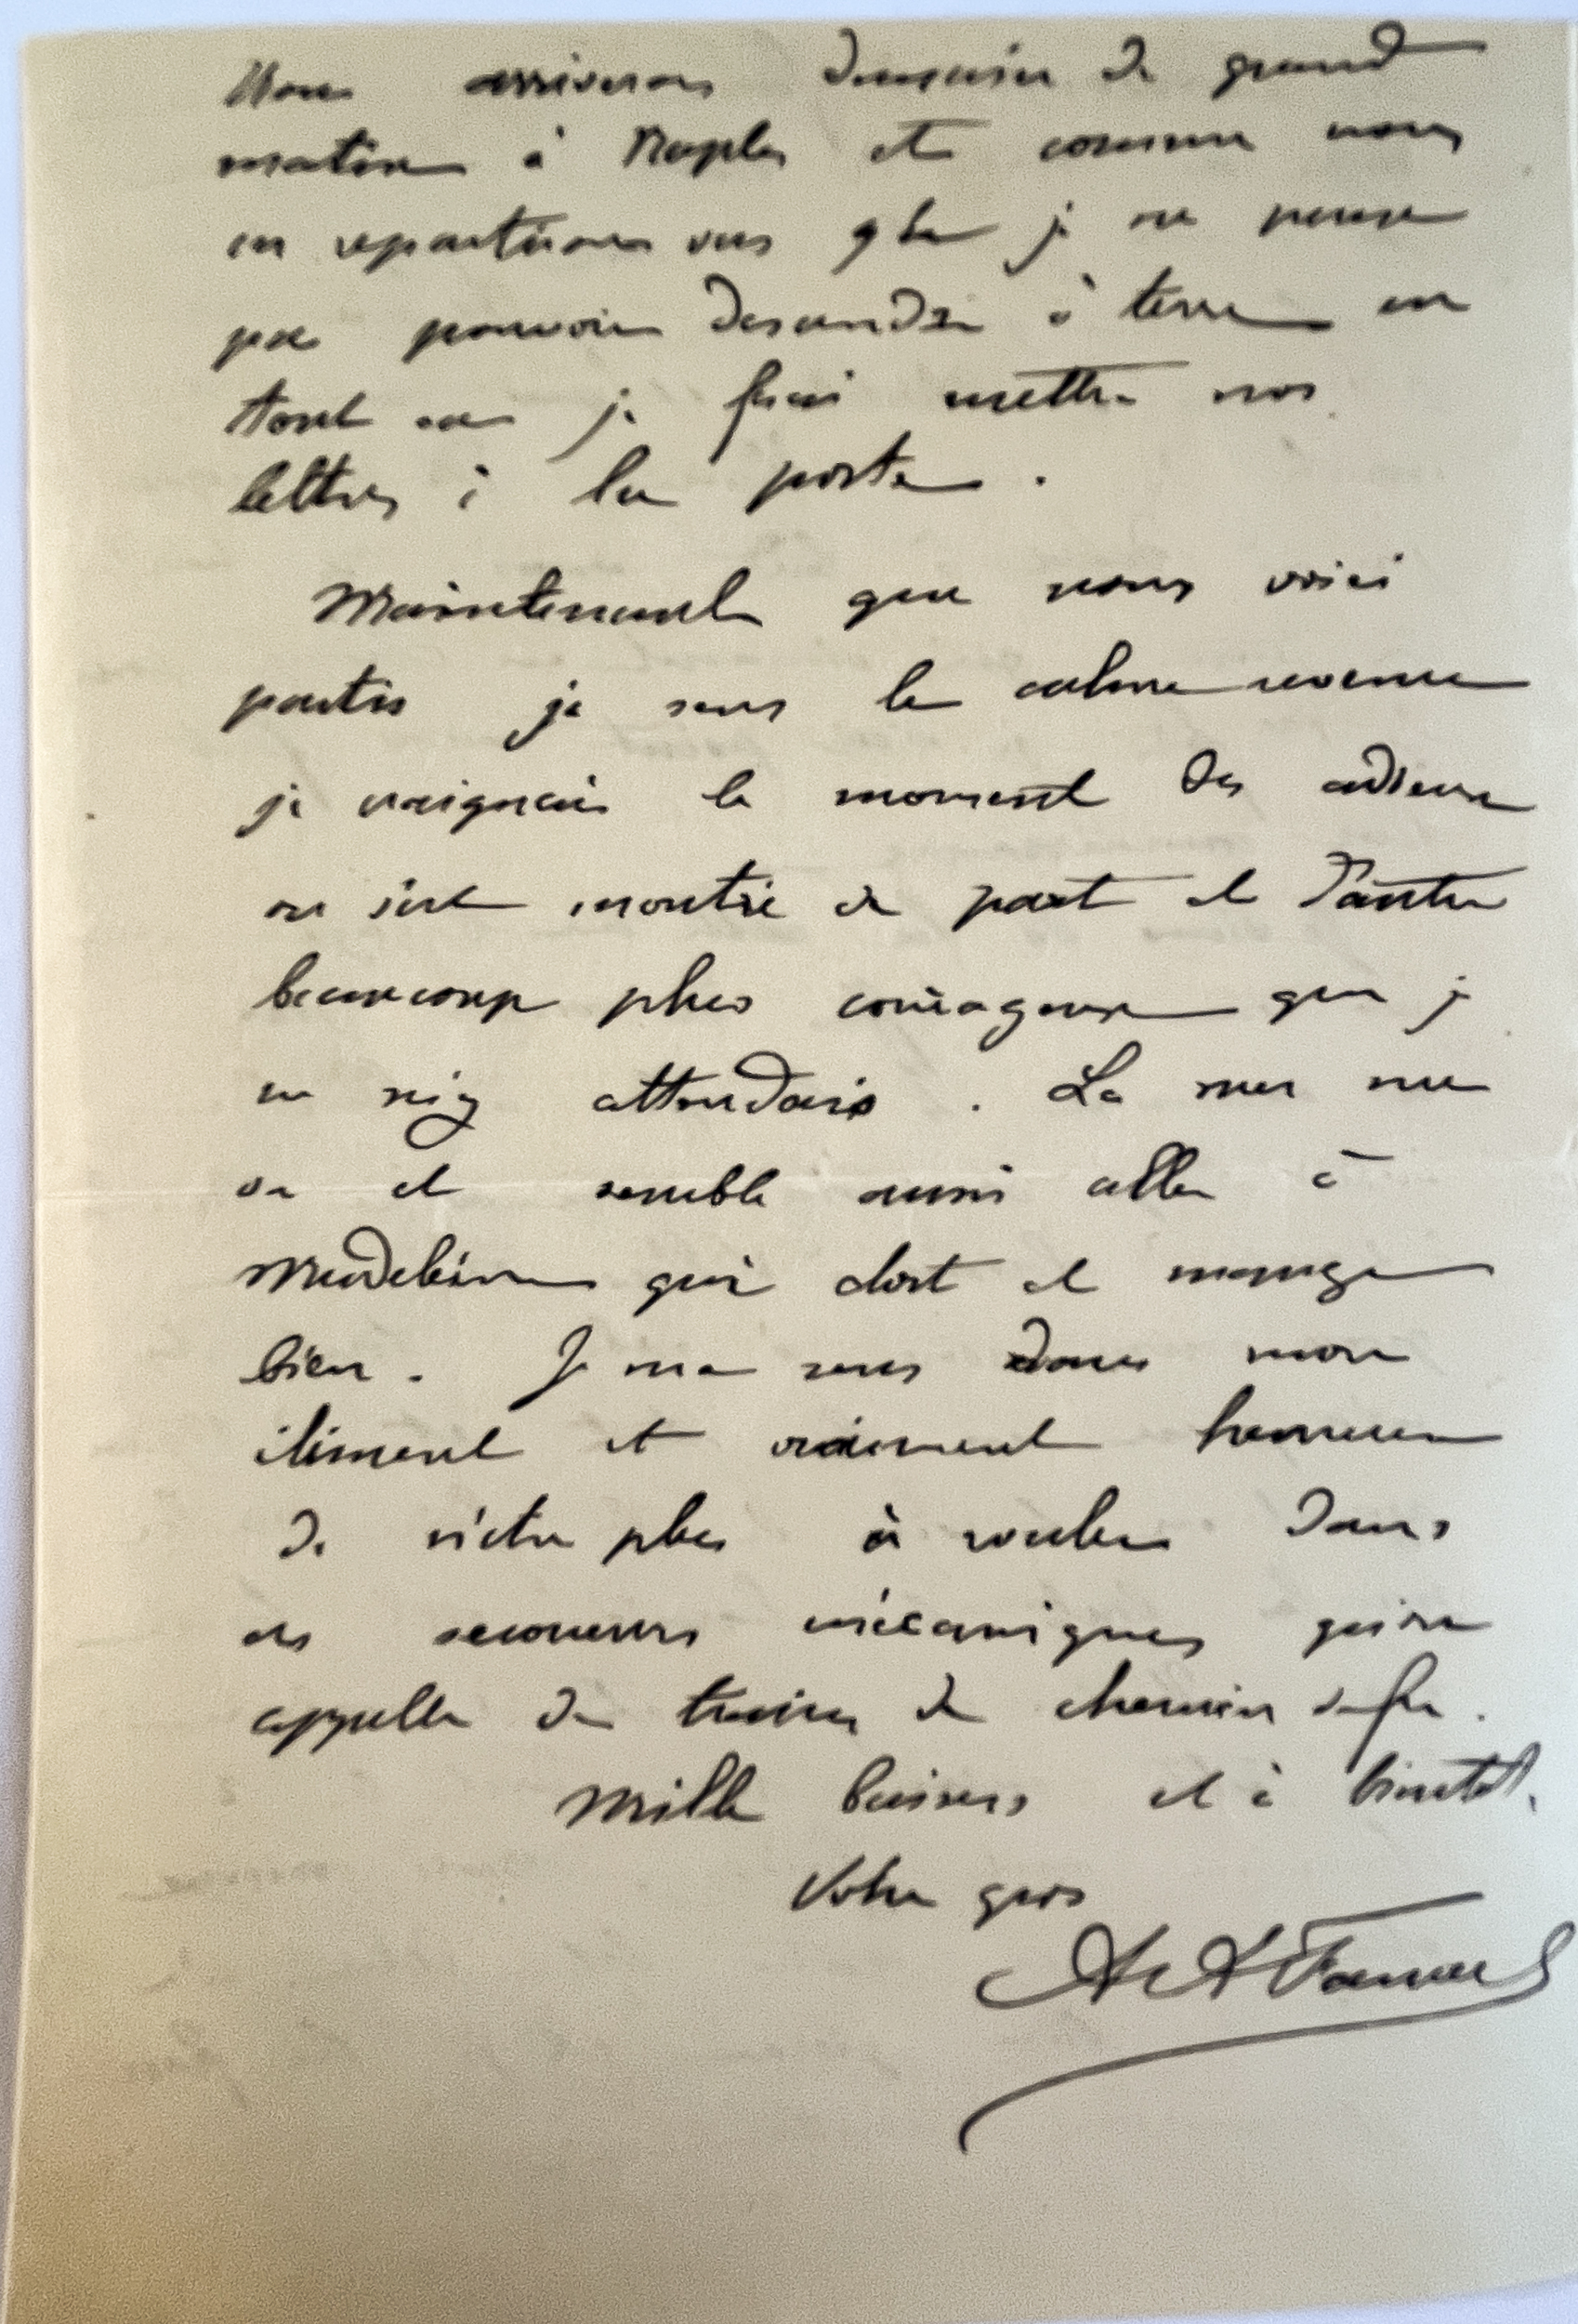 Nous arriverons demain de grand
matin à Naples et comme nous
en repartirons vers 9 h je ne pense
pas pouvoir descendre à terre en
tout cas je ferai mettre nos
lettres à la poste.
Maintenant que nous voici
partis je sens le calme revenu
je craignais le moment des adieux
on s'est montré de part et d'autre
beaucoup plus courageux que je
ne m'y attendais. La mer me
va et semble aussi aller à
Madeleine qui dort et mange
bien. Je me sens dans mon
élément et vraiment heureux
de n'être plus à rouler dans
ces secoueurs mécaniques qu'on
appelle des trains de chemin de fer.
Mille baisers et à bientôt.
Votre gros